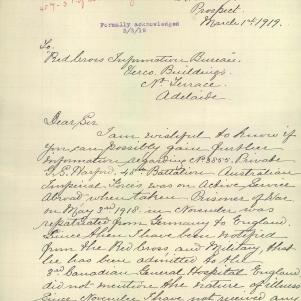 Prospect.
March 1st 1919.
Formally acknowledged
3/3/19
To.
Red Cross Information Bureau.
Verco Buildings.
Nth Terrace.
Adelaide
Dear Sir
I am wishful to know if
you can possibly gain further
Information regarding No 3855. Private
48th Battalion Australian
Imperial Forces was on Active Service
Abroad when taken Prisoner of War
on May 3rd 1918. in November was
repatriated from Germany to England.
Since then I have been notified
from the Red Cross and Military that
he has been admitted to the
3rd Canadian General Hospital England
did not mention the nature of illness
Since November I have not received any